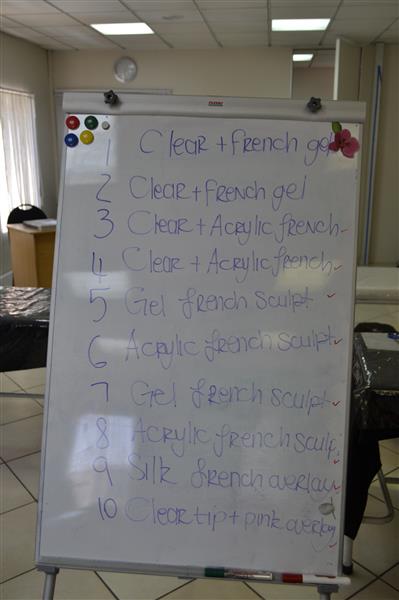 1 Clear + french gel
2 Clear + french gel
3 Clear + Acrylic french
4 Clear + Acrylic french
5 Gel french sculpt
6 Acrylic french sculpt
7 Gel french sculpt
8 Acrylic french sculp
9 Silk french overlay
10 Clear tip + pink overlay